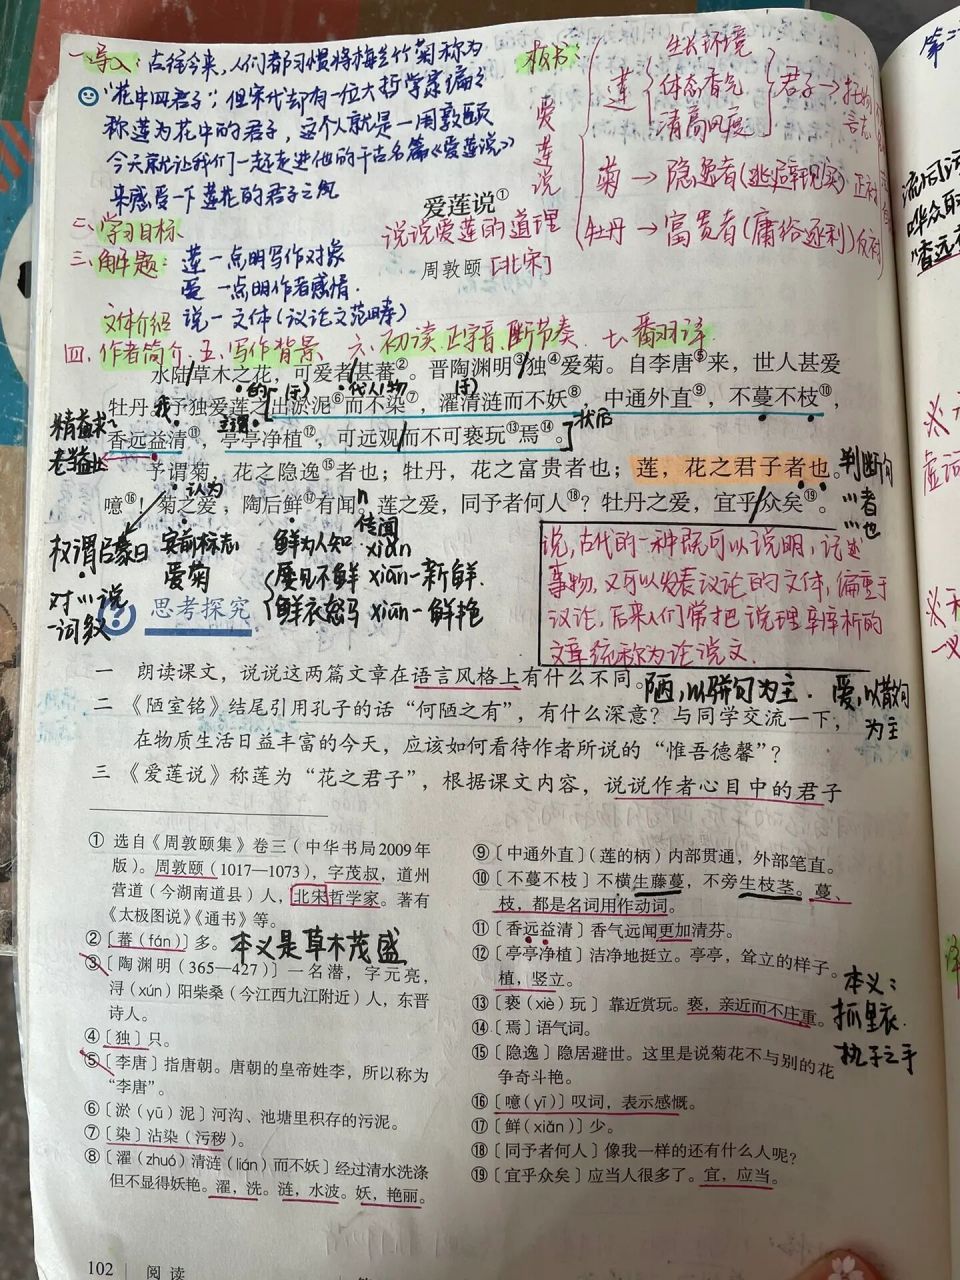 一导入：古往今来，人们都习惯将梅兰竹菊称为
"花中四君子"，但宋代却有一位大哲学家偏偏
称莲为花中的君子，这个人就是一周敦颐
今天就让我们一起走进他的千古名篇《爱莲说》
来感受一下莲花的君子之风
二、学习目标
三、解题：莲一点明写作对象
爱一点明作者感情.
文体介绍 说一文体(议论文范畴)
四、作者简介.五、写作背景、六、初读、正字音、断节奏、七、翻译
板书：
爱莲说
莲
生长环境
体态香气
清高风度
君子→托物言志
菊→隐逸者(逃避现实)正衬
牡丹→富贵者(庸俗逐利)反衬
爱莲说①
说说爱莲的道理
周敦颐[北宋]
水陆/草木之花，可爱者/甚蕃②。晋陶渊明③/独④爱菊。自李唐⑤来，世人甚爱
的 代人/物
牡丹。予独爱莲之出淤泥⑥而不染⑦，濯清涟而不妖⑧，中通外直⑨，不蔓不枝⑩，
我 主谓
香远益清⑪，亭亭净植⑫，可远观/而不可亵玩⑬焉⑭。
状后
精益求~
老当益壮
予谓菊，花之隐逸⑮者也；牡丹，花之富贵者也；莲，花之君子者也。
判断句
…者
…也
认为
噫⑯！菊之爱，陶后鲜⑰有闻。莲之爱，同予者何人⑱？牡丹之爱，宜乎/众矣⑲。
权谓启蒙曰
对…说
一词多义
宾前标志
爱菊
传闻
鲜为人知 xiǎn
屡见不鲜 xiān一新鲜.
鲜衣怒马 xiān一鲜艳
说，古代的一种既可以说明，记述
事物，又可以发表议论的文体，偏重于
议论，后来人们常把说理辛辣析的
文章统称为论说文.
思考探究
一 朗读课文，说说这两篇文章在语言风格上有什么不同。
陋，以骈句为主. 爱，以散句为主
二 《陋室铭》结尾引用孔子的话“何陋之有”，有什么深意？与同学交流一下，
在物质生活日益丰富的今天，应该如何看待作者所说的“惟吾德馨”？
三 《爱莲说》称莲为“花之君子”，根据课文内容，说说作者心目中的君子
① 选自《周敦颐集》卷三（中华书局2009年
版）。周敦颐（1017—1073），字茂叔，道州
营道（今湖南道县）人，北宋哲学家。著有
《太极图说》《通书》等。
②〔蕃（fán）〕多。 本义是草木茂盛
③〔陶渊明（365—427）〕一名潜，字元亮，
浔（xún）阳柴桑（今江西九江附近）人，东晋
诗人。
④〔独〕只。
⑤〔李唐〕指唐朝。唐朝的皇帝姓李，所以称为
“李唐”。
⑥〔淤（yū）泥〕河沟、池塘里积存的污泥。
⑦〔染〕沾染（污秽）。
⑧〔濯（zhuó）清涟（lián）而不妖〕经过清水洗涤
但不显得妖艳。濯，洗。涟，水波。妖，艳丽。
⑨〔中通外直〕（莲的柄）内部贯通，外部笔直。
⑩〔不蔓不枝〕不横生藤蔓，不旁生枝茎。蔓、
枝，都是名词用作动词。
⑪〔香远益清〕香气远闻更加清芬。
⑫〔亭亭净植〕洁净地挺立。亭亭，耸立的样子。
植，竖立。
⑬〔亵（xiè）玩〕靠近赏玩。亵，亲近而不庄重。
⑭〔焉〕语气词。
⑮〔隐逸〕隐居避世。这里是说菊花不与别的花
争奇斗艳。
⑯〔噫（yī）〕叹词，表示感慨。
⑰〔鲜（xiǎn）〕少。
⑱〔同予者何人〕像我一样的还有什么人呢？
⑲〔宜乎众矣〕应当人很多了。宜，应当。
本义：
执子之手
102 阅读